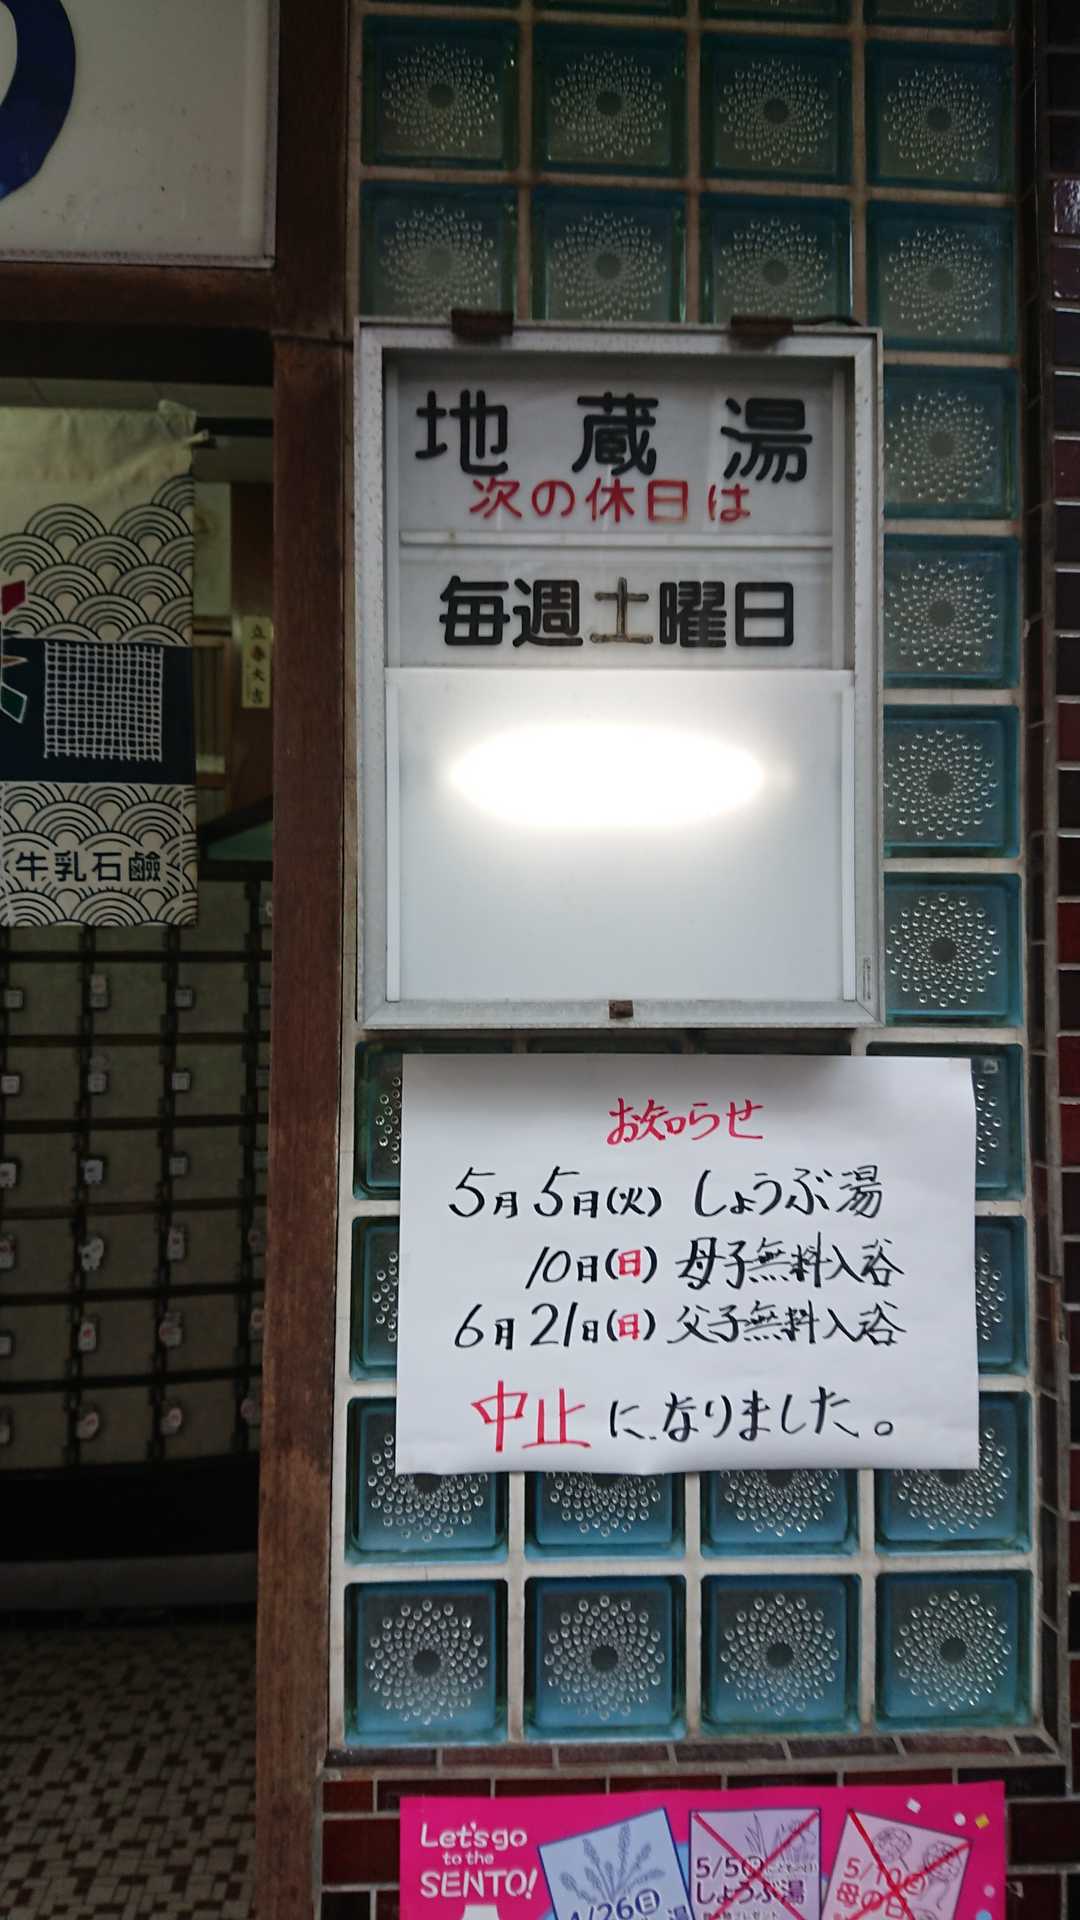 地蔵湯
次の休日は
毎週土曜日
立春大吉
牛乳石鹼
お知らせ
5月5日(火)しょうぶ湯
10日(日)母子無料入浴
6月21日(日)父子無料入浴
中止になりました。
Let'sgo
to the
SENTO!
4/26日
湯
5/5
しょうぶ湯
5/10
母の日